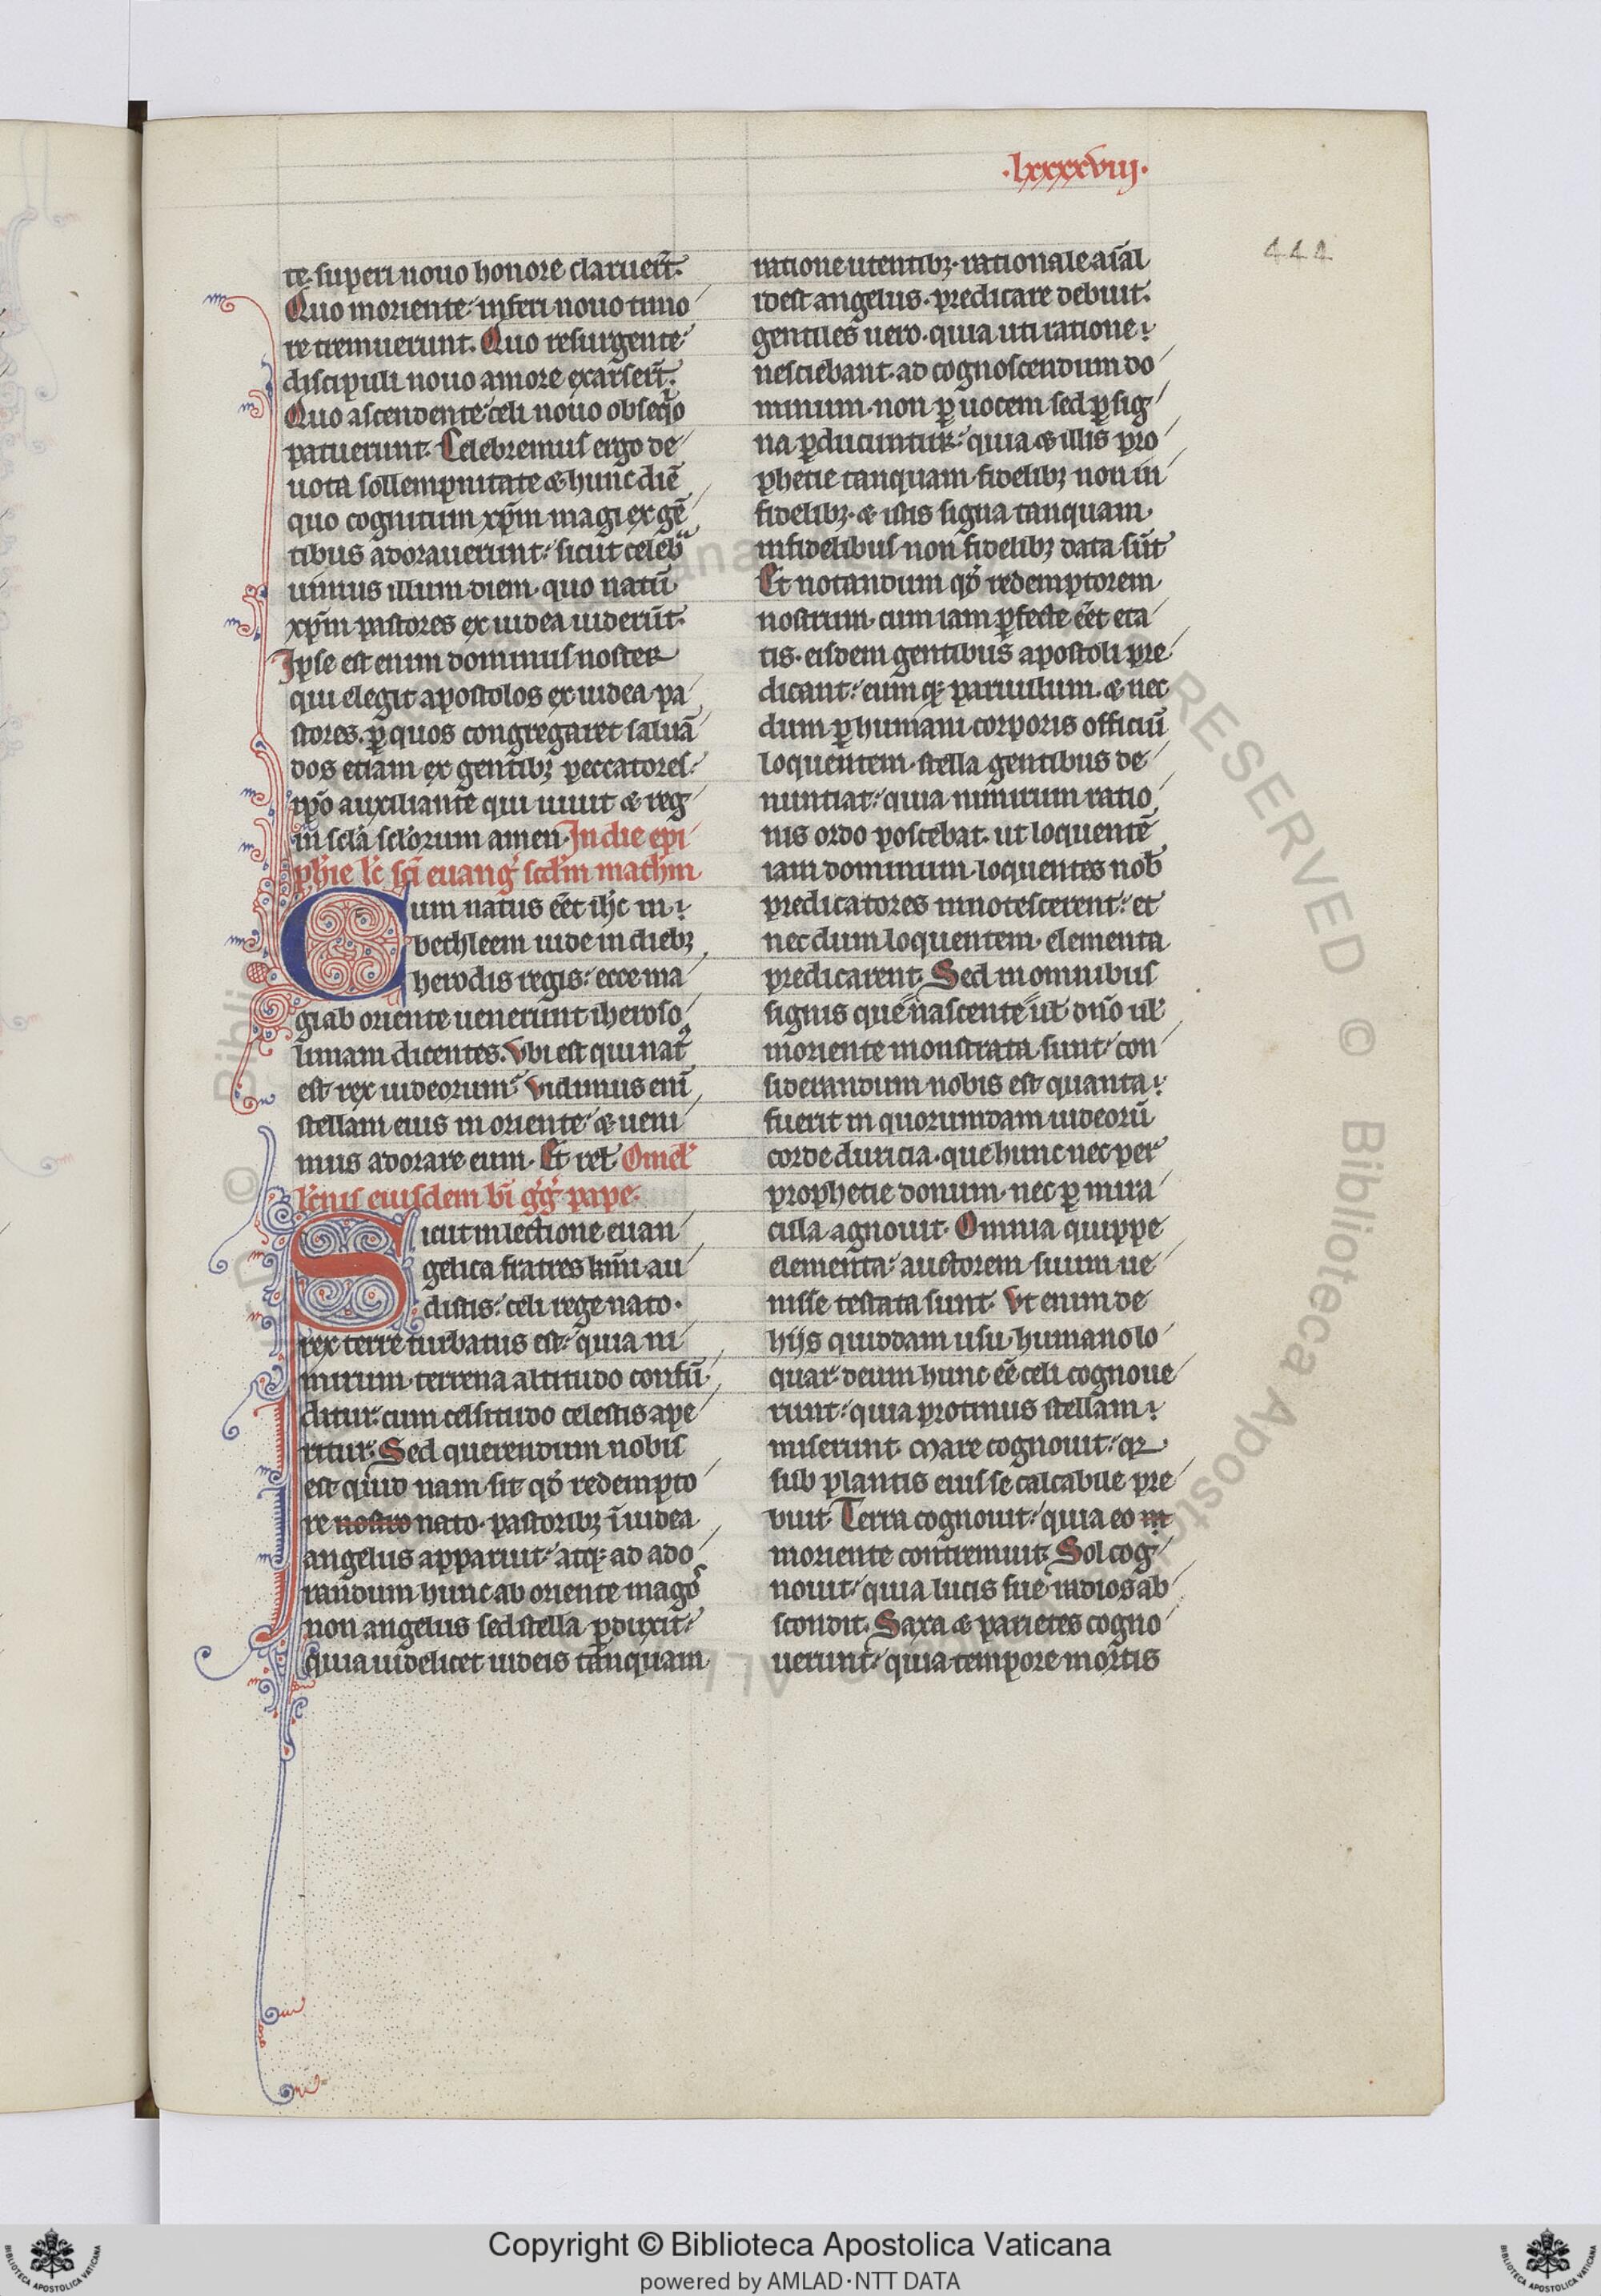 .lxxxxviij.
444
te. superi nouo honore claruerūt.
Quo moriente: inferi nouo timo
re tremuerunt. Quo resurgente:
discipuli nouo amore exarserūt.
Quo ascendente: celi nouo obseqͥo
patuerunt. Celebremus ergo de
uota sollempnitate & hunc diē
quo cognitum xp̄m magi ex gē
tibus adorauerunt: sicut celebͣ
uimus illum diem. quo natū
xp̄m pastores ex iudea uiderūt.
Ipse est enim dominus noster
qui elegit apostolos ex iudea pa
stores. ꝑ quos congregaret saluā
dos etiam ex gentibꝫ peccatores.
ip̄o auxiliante qui uiuit & reg
in scl̄a scl̄orum amen. In die epi
ph̄ie lc̄ sc̄i euang̾ scd̄m math̄m
Cum natus eēt ih̄c in
bethleem iude in diebꝫ
herodis regis: ecce ma
gi ab oriente uenerunt iheroso
limam dicentes. Vbi est qui natꝰ
est rex iudeorum? Vidimus enī
stellam eius in oriente: & ueni
mus adorare eum. Et rel̄ Omel̾
lc̄nis eiusdem bī g̾g̾ pape.
Sicut in lectione euan
gelica fratres km̄i au
distis: celi rege nato.
rex terre turbatus est: quia ni
mirum. terrena altitudo confū
ditur. cum celsitudo celestis ape
ritur. Sed querendum nobis
est quid nam sit qd̾ redempto
re nostro nato. pastoribꝫ ī iudea
angelus apparuit: atqꝫ ad ado
randum hunc ab oriente magoˢ
non angelus sed stella ꝑduxit:
quia uidelicet iudeis tanquam
ratione utentibꝫ. rationale aīal
idest angelus. predicare debuit.
gentiles uero. quia uti ratione
nesciebant. ad cognoscendum do
minum. non ꝑ uocem sed ꝑ sig
na ꝑducuntur. quia & illis pro
phetie tanquam fidelibꝫ non in
fidelibꝫ. & istis signa tanquam
infidelibus non fidelibꝫ data sūt
Et notandum qd̾ redemptorem
nostrum. cum iam ꝑfecte eēt eta
tis. eisdem gentibus apostoli pre
dicant: eumqꝫ paruulum. & nec
dum ꝑ humani corporis officiū
loquentem. stella gentibus de
nuntiat: quia nimirum ratio
nis ordo poscebat. ut loquentē
iam dominum. loquentes nob̄
predicatores innotescerent: et
nec dum loquentem. elementa
predicarent. Sed in omnibus
signis que nascente ūt dn̄o ul̾
moriente monstrata sunt: con
siderandum nobis est quanta
fuerit in quorumdam iudeorū
corde duricia. que hunc nec per
prophetie donum. nec ꝑ mira
cula agnouit. Omnia quippe
elementa: auctorem suum ue
nisse testata sunt. Vt enim de
hijs quiddam usu humano lo
quar. deum hunc eē celi cognoue
runt: quia protinus stellam
miserunt. Mare cognouit: qꝛ
sub plantis eius se calcabile pre
buit. Terra cognouit: quia eo m
moriente contremuit. Sol cog
nouit: quia lucis sue radios ab
scondit. Saxa & parietes cogno
uerunt: quia tempore mortis
Copyright © Biblioteca Apostolica Vaticana
powered by AMLAD·NTT DATA